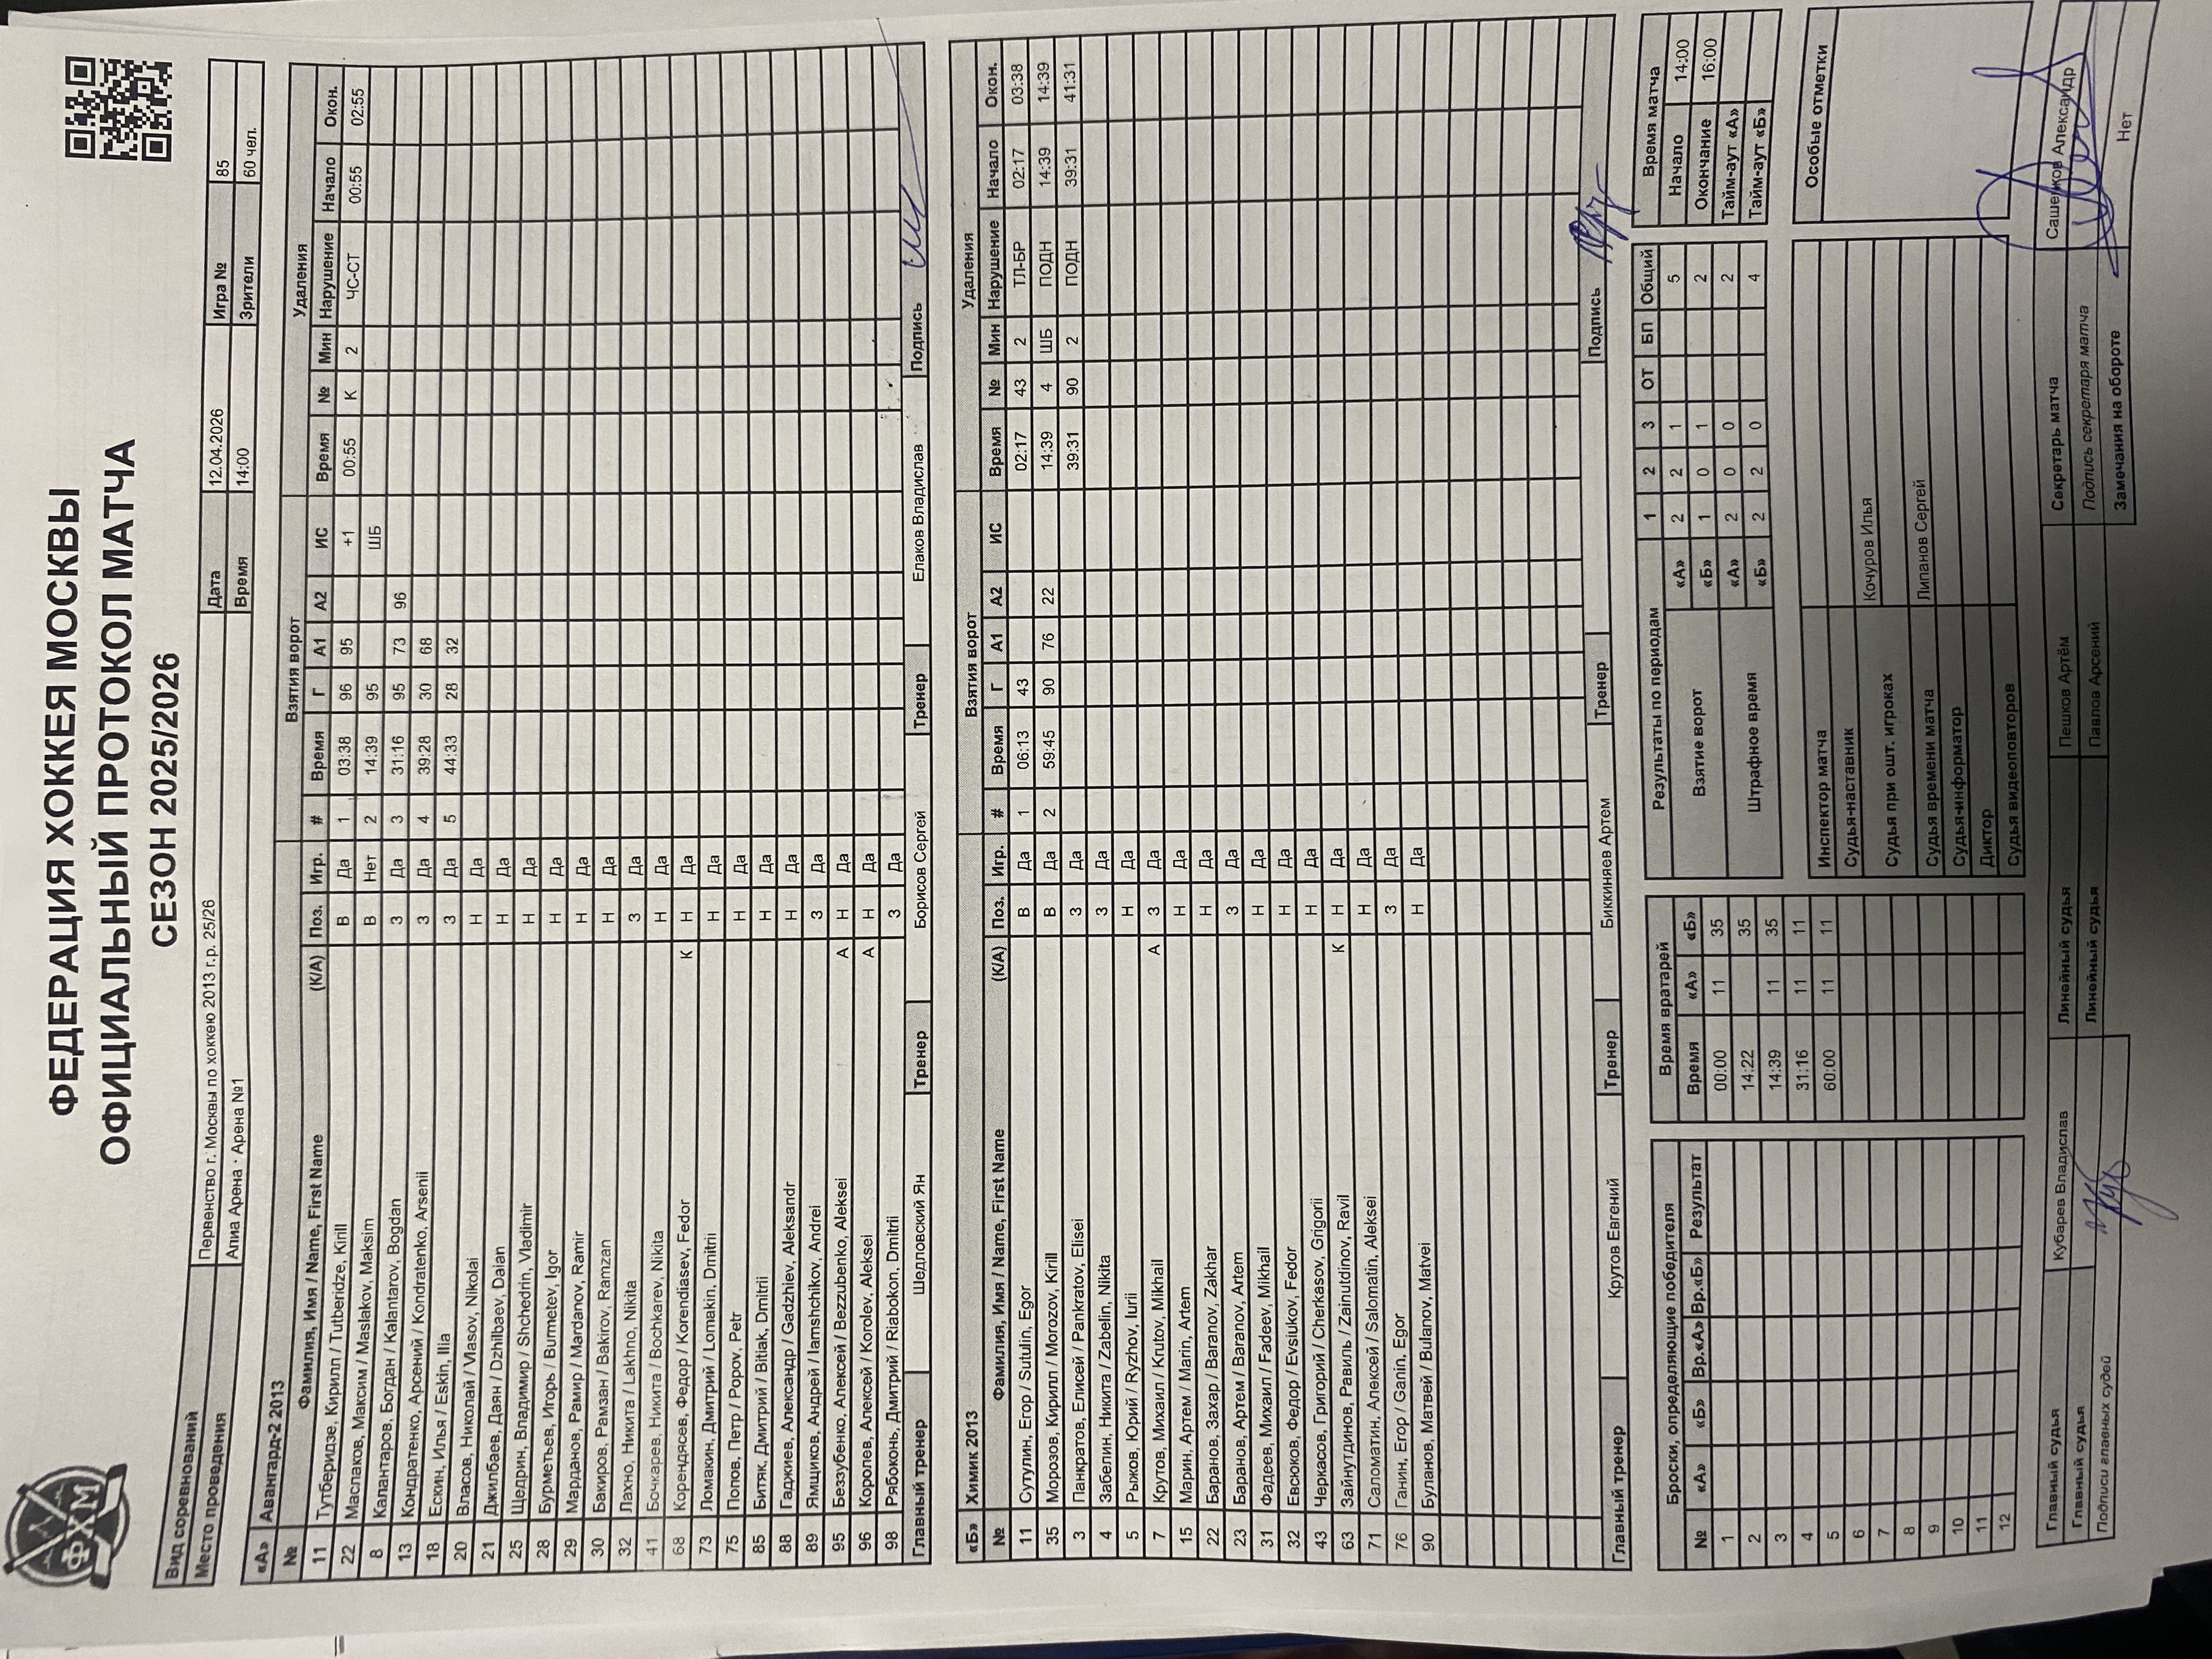 ФХМ
ФЕДЕРАЦИЯ ХОККЕЯ МОСКВЫ
ОФИЦИАЛЬНЫЙ ПРОТОКОЛ МАТЧА
СЕЗОН 2025/2026
Вид соревнований Первенство г. Москвы по хоккею 2013 г.р. 25/26 Дата 12.04.2026 Игра № 85
Место проведения Апиа Арена · Арена №1 Время 14:00 Зрители 60 чел.
«А» Авангард-2 2013 Взятия ворот Удаления
№ Фамилия, Имя / Name, First Name (К/А) Поз. Игр. # Время Г А1 А2 ИС Время № Мин Нарушение Начало Окон.
11 Тутберидзе, Кирилл / Tutberidze, Kirill В Да 1 03:38 96 95 +1 00:55 К 2 ЧС-СТ 00:55 02:55
22 Маслаков, Максим / Maslakov, Maksim В Нет 2 14:39 95 ШБ
8 Калантаров, Богдан / Kalantarov, Bogdan З Да 3 31:16 95 73 96
13 Кондратенко, Арсений / Kondratenko, Arsenii З Да 4 39:28 30 68
18 Ескин, Илья / Eskin, Ilia З Да 5 44:33 28 32
20 Власов, Николай / Vlasov, Nikolai Н Да
21 Джилбаев, Даян / Dzhilbaev, Daian Н Да
25 Щедрин, Владимир / Shchedrin, Vladimir Н Да
28 Бурметьев, Игорь / Burmetev, Igor Н Да
29 Марданов, Рамир / Mardanov, Ramir Н Да
30 Бакиров, Рамзан / Bakirov, Ramzan Н Да
32 Лахно, Никита / Lakhno, Nikita З Да
41 Бочкарев, Никита / Bochkarev, Nikita Н Да
68 Корендясев, Федор / Korendiasev, Fedor К Н Да
73 Ломакин, Дмитрий / Lomakin, Dmitrii Н Да
75 Попов, Петр / Popov, Petr Н Да
85 Битяк, Дмитрий / Bitiak, Dmitrii Н Да
88 Гаджиев, Александр / Gadzhiev, Aleksandr Н Да
89 Ямщиков, Андрей / Iamshchikov, Andrei З Да
95 Беззубенко, Алексей / Bezzubenko, Aleksei А Н Да
96 Королев, Алексей / Korolev, Aleksei А Н Да
98 Рябоконь, Дмитрий / Riabokon, Dmitrii З Да
Главный тренер Шедловский Ян Тренер Борисов Сергей Тренер Елаков Владислав Подпись
«Б» Химик 2013 Взятия ворот Удаления
№ Фамилия, Имя / Name, First Name (К/А) Поз. Игр. # Время Г А1 А2 ИС Время № Мин Нарушение Начало Окон.
11 Сутулин, Егор / Sutulin, Egor В Да 1 06:13 43 02:17 43 2 ТЛ-БР 02:17 03:38
35 Морозов, Кирилл / Morozov, Kirill В Да 2 59:45 90 76 22 14:39 4 ШБ ПОДН 14:39 14:39
3 Панкратов, Елисей / Pankratov, Elisei З Да 39:31 90 2 ПОДН 39:31 41:31
4 Забелин, Никита / Zabelin, Nikita З Да
5 Рыжов, Юрий / Ryzhov, Iurii Н Да
7 Крутов, Михаил / Krutov, Mikhail А З Да
15 Марин, Артем / Marin, Artem Н Да
22 Баранов, Захар / Baranov, Zakhar Н Да
23 Баранов, Артем / Baranov, Artem З Да
31 Фадеев, Михаил / Fadeev, Mikhail Н Да
32 Евсюков, Федор / Evsiukov, Fedor Н Да
43 Черкасов, Григорий / Cherkasov, Grigorii Н Да
63 Зайнутдинов, Равиль / Zainutdinov, Ravil К Н Да
71 Саломатин, Алексей / Salomatin, Aleksei Н Да
76 Ганин, Егор / Ganin, Egor З Да
90 Буланов, Матвей / Bulanov, Matvei Н Да
Главный тренер Крутов Евгений Тренер Биккиняев Артем Тренер Подпись
Броски, определяющие победителя
№ «А» «Б» Вр.«А» Вр.«Б» Результат
1
2
3
4
5
6
7
8
9
10
11
12
Время вратарей
Время «А» «Б»
00:00 11 35
14:22 35
14:39 11 35
31:16 11 11
60:00 11 11
Результаты по периодам 1 2 3 ОТ БП Общий
Взятие ворот «А» 2 2 1 5
«Б» 1 0 1 2
Штрафное время «А» 2 0 0 2
«Б» 2 2 0 4
Время матча
Начало 14:00
Окончание 16:00
Тайм-аут «А»
Тайм-аут «Б»
Инспектор матча
Судья-наставник
Судья при ошт. игроках Кочуров Илья
Судья времени матча Липанов Сергей
Судья-информатор
Диктор
Судья видеоповторов
Особые отметки
Главный судья Кубарев Владислав Линейный судья Пешков Артём Секретарь матча Сашенков Александр
Главный судья Линейный судья Павлов Арсений Подпись секретаря матча
Подписи главных судей Замечания на обороте Нет